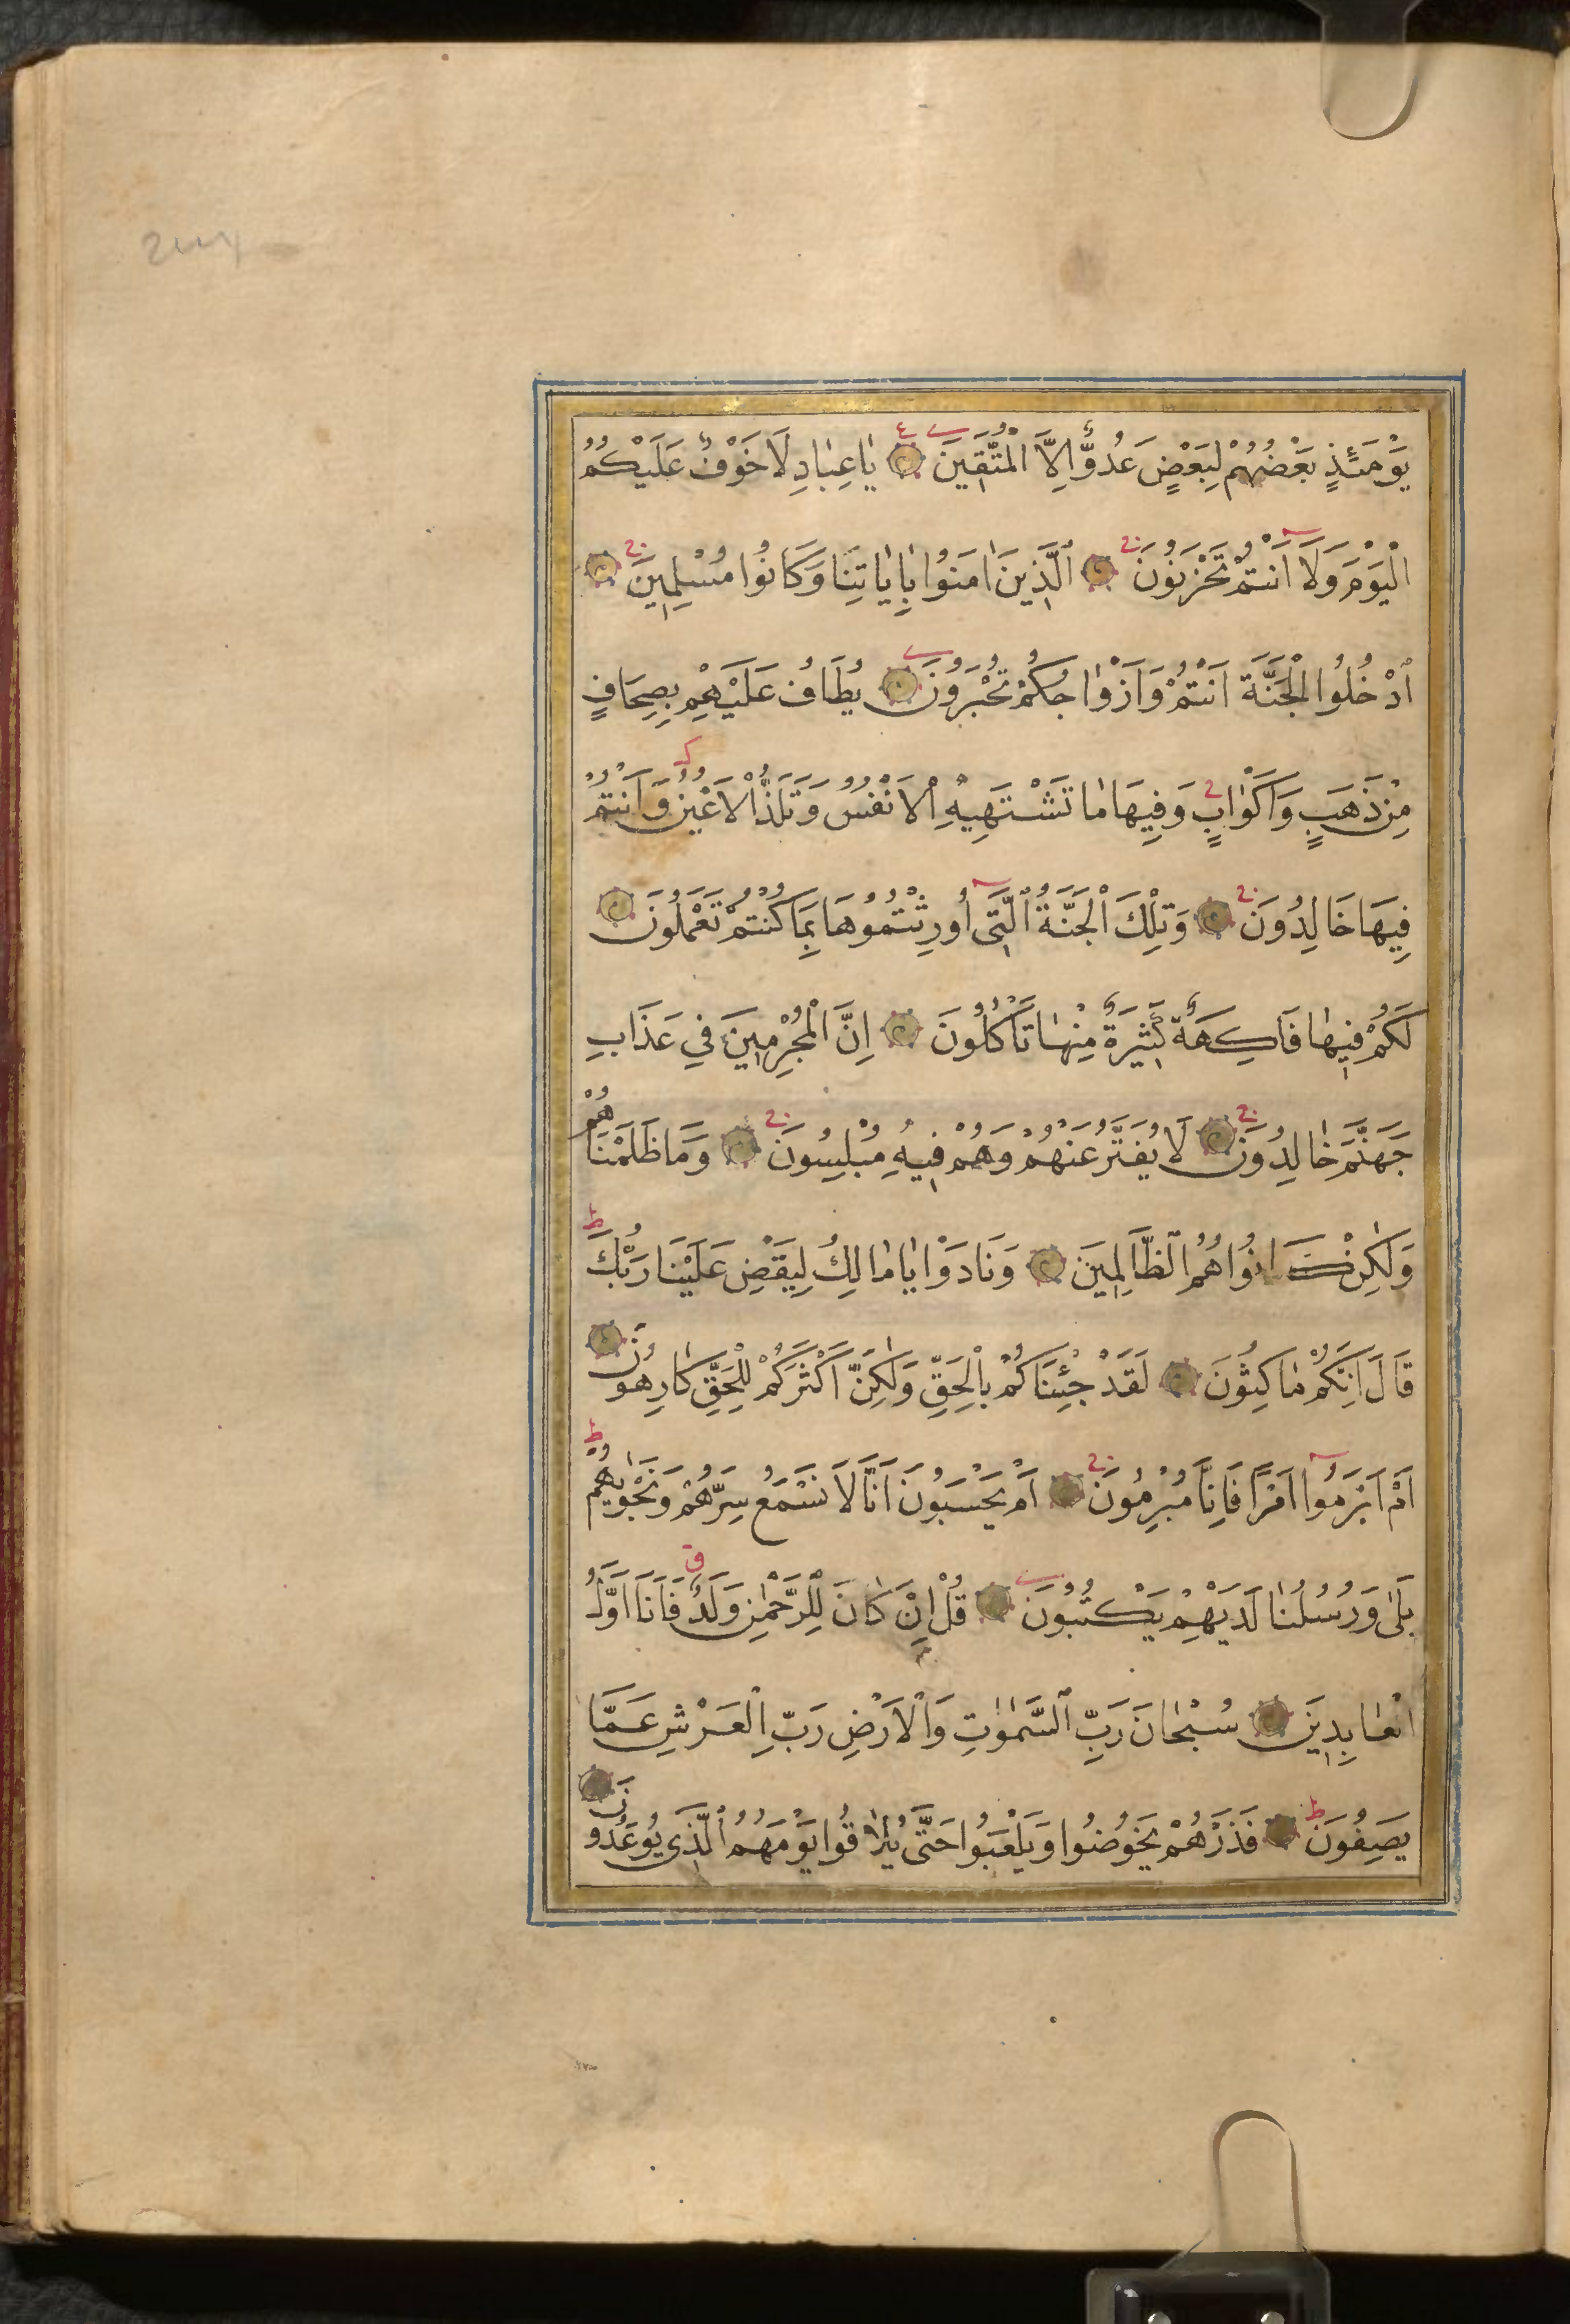 يَوْمَئِذٍ بَعْضُهُمْ لِبَعْضٍ عَدُوٌّ اِلَّا الْمُتَّقِينَ يَا عِبَادِ لَا خَوْفٌ عَلَيْكُمُ
الْيَوْمَ وَلَا اَنْتُمْ تَحْزَنُونَ اَلَّذِينَ اٰمَنُوا بِاٰيَاتِنَا وَكَانُوا مُسْلِمِينَ
اُدْخُلُوا الْجَنَّةَ اَنْتُمْ وَاَزْوَاجُكُمْ تُحْبَرُونَ يُطَافُ عَلَيْهِمْ بِصِحَافٍ
مِنْ ذَهَبٍ وَاَكْوَابٍ وَفِيهَا مَا تَشْتَهِيهِ الْاَنْفُسُ وَتَلَذُّ الْاَعْيُنُ وَاَنْتُمْ
فِيهَا خَالِدُونَ وَتِلْكَ الْجَنَّةُ الَّتِى اُورِثْتُمُوهَا بِمَا كُنْتُمْ تَعْمَلُونَ
لَكُمْ فِيهَا فَاكِهَةٌ كَثِيرَةٌ مِنْهَا تَاْكُلُونَ اِنَّ الْمُجْرِمِينَ فِي عَذَابِ
جَهَنَّمَ خَالِدُونَ لَا يُفَتَّرُ عَنْهُمْ وَهُمْ فِيهِ مُبْلِسُونَ وَمَا ظَلَمْنَاهُمْ
وَلٰكِنْ كَانُوا هُمُ الظَّالِمِينَ وَنَادَوْا يَا مَالِكُ لِيَقْضِ عَلَيْنَا رَبُّكَ
قَالَ اِنَّكُمْ مَاكِثُونَ لَقَدْ جِئْنَاكُمْ بِالْحَقِّ وَلٰكِنَّ اَكْثَرَكُمْ لِلْحَقِّ كَارِهُونَ
اَمْ اَبْرَمُوا اَمْرًا فَاِنَّا مُبْرِمُونَ اَمْ يَحْسَبُونَ اَنَّا لَا نَسْمَعُ سِرَّهُمْ وَنَجْوٰيهُمْ
بَلٰى وَرُسُلُنَا لَدَيْهِمْ يَكْتُبُونَ قُلْ اِنْ كَانَ لِلرَّحْمٰنِ وَلَدٌ فَاَنَا اَوَّلُ
الْعَابِدِينَ سُبْحَانَ رَبِّ السَّمٰوَاتِ وَالْاَرْضِ رَبِّ الْعَرْشِ عَمَّا
يَصِفُونَ فَذَرْهُمْ يَخُوضُوا وَيَلْعَبُوا حَتّٰى يُلَاقُوا يَوْمَهُمُ الَّذِى يُوعَدُونَ